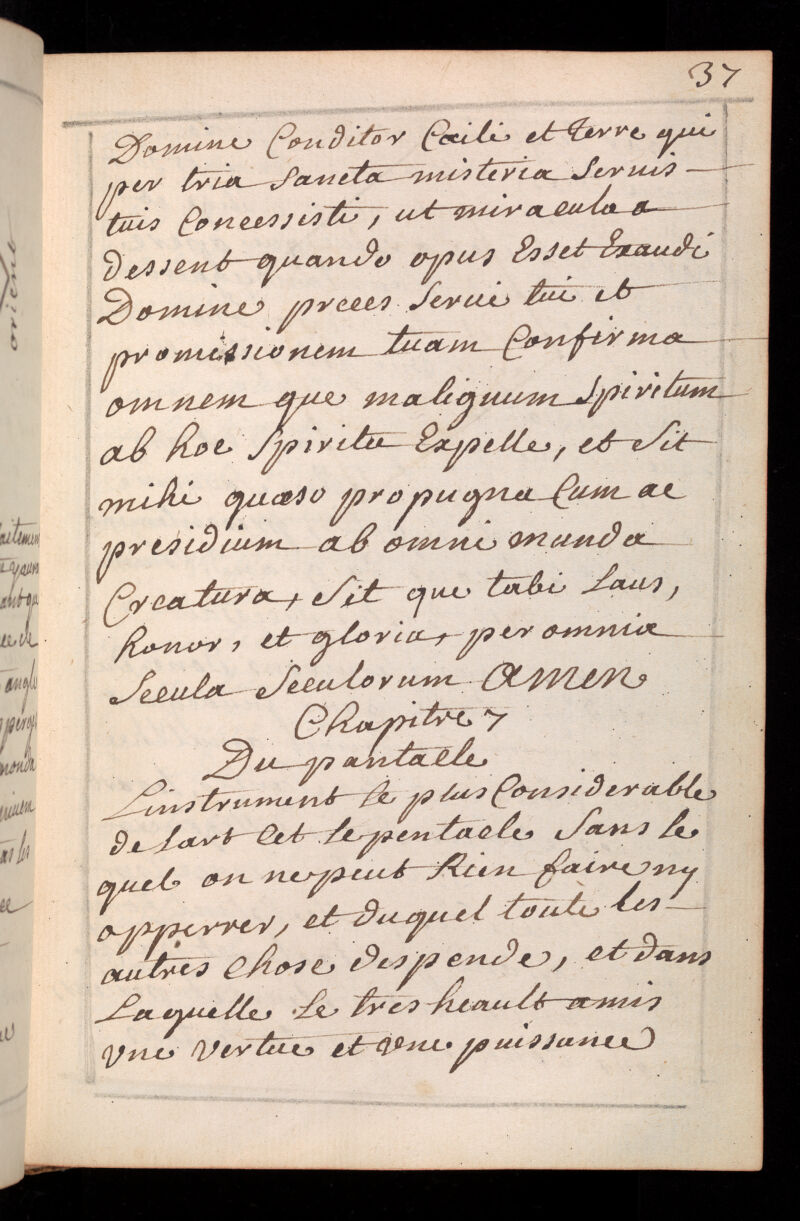 37
Domine Conditor Cæili et terre qui
per tria Sancta misteria Servis
tuis Concessisti, ut miracula a
dessent quando opus Esset Exaudi
Domine preces Servi tui et
promissionem tuam Confirma
omnem que malignum Spiritum
ab hoc Spiritu Expelle, et Sit
mihi quæso propugna Cum ac
presidium ab omni munda
Creatura, Sit que tabi Laus,
honor, et gloria, per omnia
Secula Seculorum Amen
Chapitre 7
Du pantacle
Linstrument le plus Considerable
de Lart Cet le pentacle Sans le
quel on ne peut Rien faire ny
opperrer, et duquel toute les
autres Chose despende, et dans
Laquelle Le tres heault amis
une vertue et une puissance
orient
monda